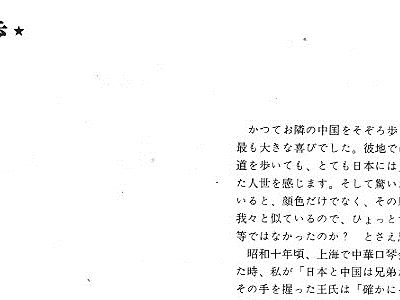 ★
かつてお隣の中国をそぞろ歩
最も大きな喜びでした。彼地で
道を歩いても、とても日本には
た人世を感じます。そして驚い
いると、顔色だけでなく、その
我々と似ているので、ひょっと
等ではなかったのか？　とさえ
昭和十年頃、上海で中華口琴
た時、私が「日本と中国は兄弟
その手を握った王氏は「確かに